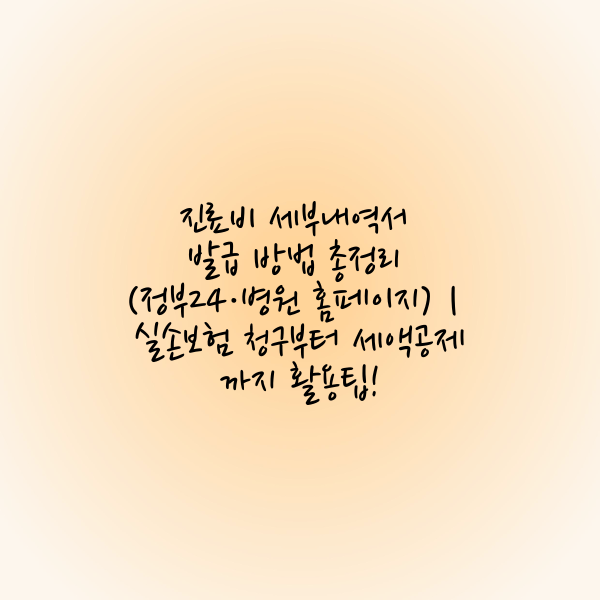 진료비 세부내역서
발급 방법 총정리
(정부24·병원 홈페이지) |
실손보험 청구부터 세액공제
까지 활용팁!